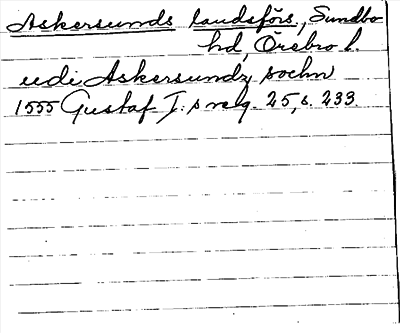 Askersunds landsförs., Sundbo
hd, Örebro l.
uedi Askersundz sochn
1555 Gustaf I:s reg. 25, s. 233.